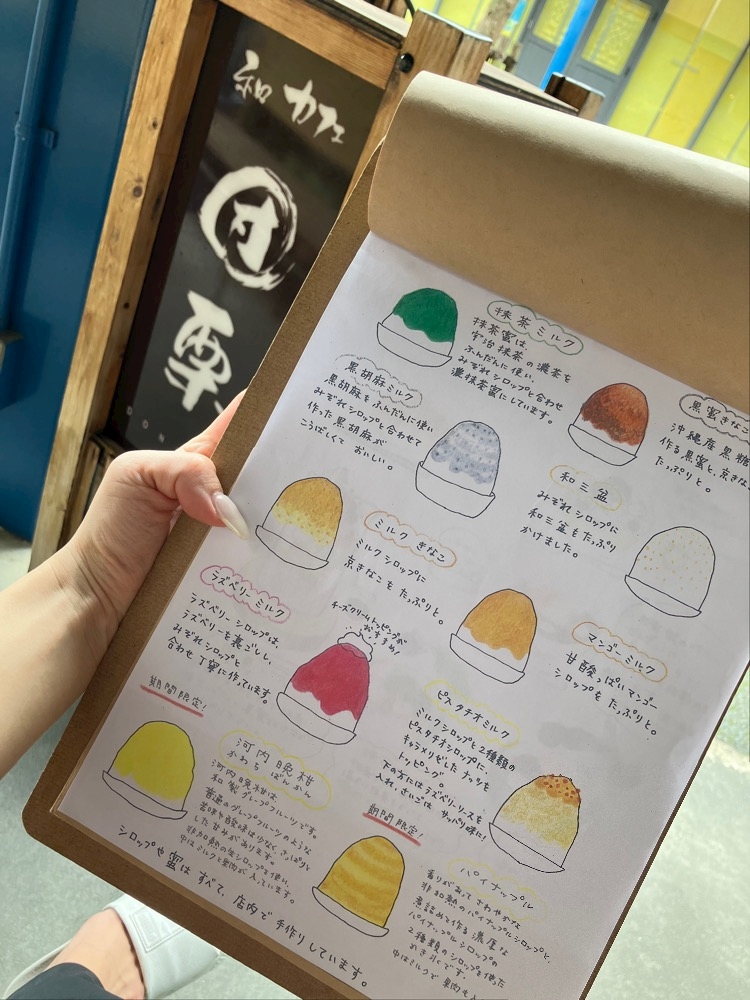 和カフェ
団
栗
DON
抹茶ミルク
抹茶蜜は、
宇治抹茶の濃茶を
ふんだんに使い、
みぞれシロップと合わせ
濃抹茶蜜にしています。
黒蜜きなこ
沖縄産黒糖
作る黒蜜と、京きな
たっぷりと。
黒胡麻ミルク
黒胡麻をふんだんに使い
みぞれシロップと合わせて
作った黒胡麻が
こうばしくて おいしい。
和三盆
みぞれシロップに
和三盆をたっぷり
かけました。
ミルクきなこ
ミルクシロップに
京きなこをたっぷりと。
ラズベリーミルク
ラズベリーシロップは、
ラズベリーを裏ごしし、
みぞれシロップと
合わせ丁寧に作っています。
チーズクリームトッピングが
おすすめ!
マンゴーミルク
甘酸っぱいマンゴー
シロップをたっぷりと。
ピスタチオミルク
ミルクシロップと2種類の
ピスタチオシロップに、
キャラメリゼしたナッツを
トッピング。
下の方にはラズベリーソースを
入れ、さいごは サッパリ味に!
期間限定!
河内晩柑
かわち ばんかん
河内晩柑は
和製グレープフルーツです。
普通のグレープフルーツのような
苦味や酸味は少なく、さっぱりと
した甘みがあります。
非加熱の生シロップを使い、
中はミルクと果肉が入っています。
期間限定!
パイナップル
香りがあってさわやかな
非加熱のパイナップルシロップと、
煮詰めて作る濃厚な
パイナップルシロップの
2種類のシロップを使った
かき氷です。
中はミルクで 果肉も入
シロップや蜜はすべて、店内で手作りしています。